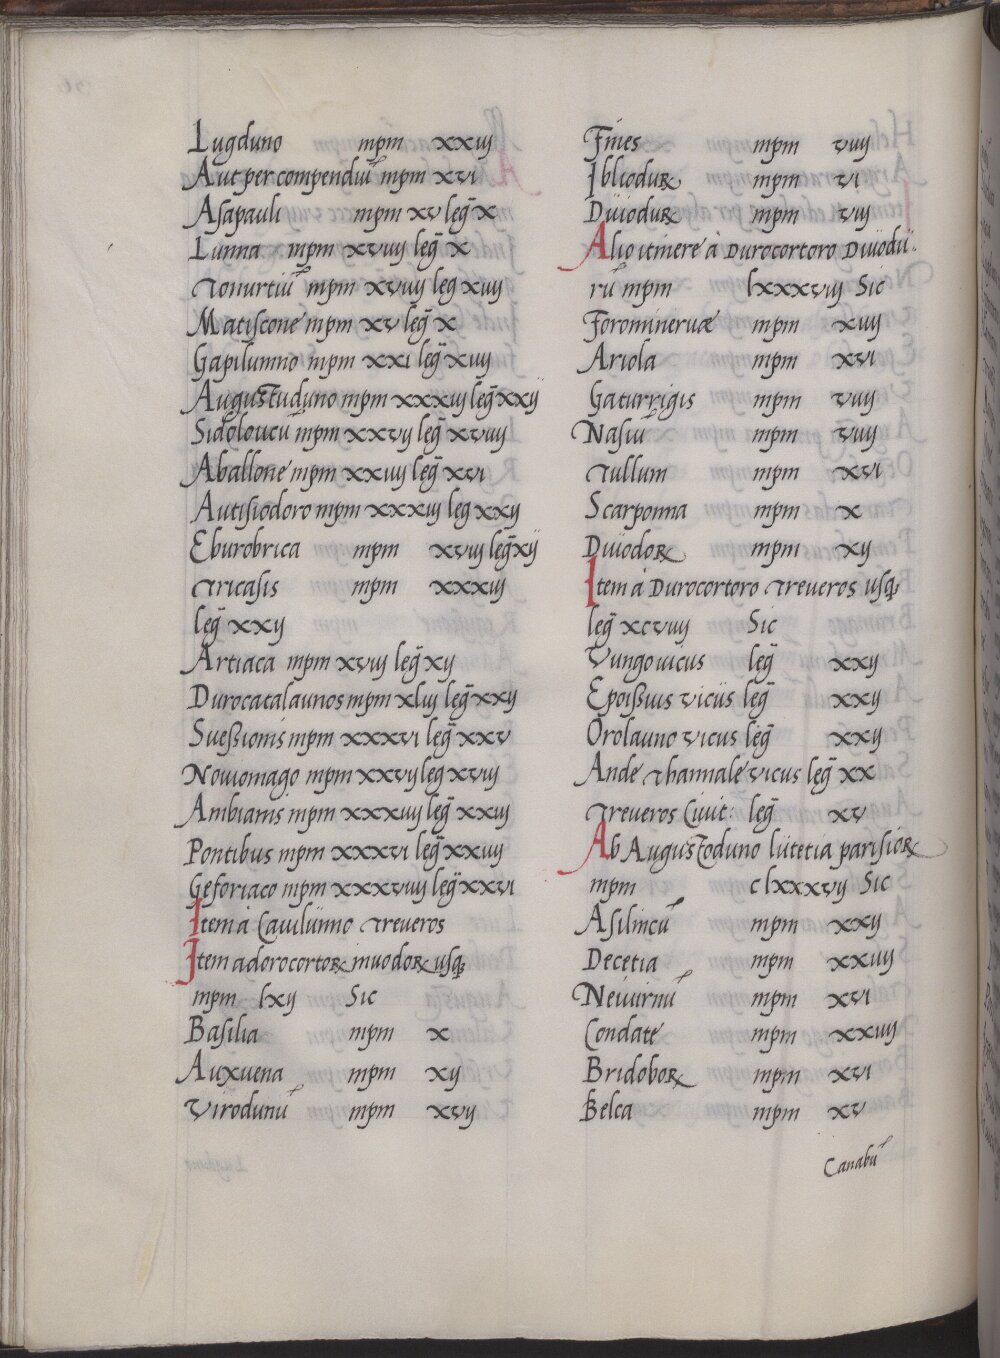 Lugduno mpm xxiij
Aut per compendiū mpm xvi
Asapauli mpm xv leḡ x
Lunna mpm xviiij leḡ x
Tonurtiū mpm xviiij leg xiij
Matiscone mpm xv leḡ x
Gapilumno mpm xxi leḡ xiiij
Augustuduno mpm xxxiij leḡ xxij
Sidoloucū mpm xxvij leḡ xviij
Aballone mpm xxiiij leḡ xvi
Autisiodoro mpm xxxiij leg xxij
Eburobrica mpm xviij leḡ xij
Tricasis mpm xxxiij
leḡ xxij
Artiaca mpm xviij leḡ xij
Durocatalaunos mpm xliij leḡ xxij
Suessionis mpm xxxvi leḡ xxv
Noviomago mpm xxvij leg xviij
Ambianis mpm xxxiiij leḡ xxiij
Pontibus mpm xxxvi leḡ xxiiij
Gesoriaco mpm xxxviiij leḡ xxvi
Item à Cavilunno Treveros
Item adorocortoꝝ inuodoꝝ usq
mpm lxij Sic
Basilia mpm x
Auxuena mpm xij
Virodunū mpm xvij
Fines mpm viiij
Iblioduꝝ mpm vi
Diuioduꝝ mpm viij
Alio itinere à Durocortoro Diuodu-
rū mpm lxxxviij Sic
Forominervæ mpm xiiij
Ariola mpm xvi
Gaturrigis mpm viiij
Nasiū mpm viiij
Tullum mpm xvi
Scarponna mpm x
Diuiodoꝝ mpm xij
Item à Durocortoro Treveros usq
leḡ xcviiij Sic
Vungovicus leḡ xxij
Epoissius vicus leḡ xxij
Orolauno vicus leḡ xxij
Ande Thannale vicus leḡ xx
Treveros Civit: leḡ xv
Ab Augustoduno lutetia parisioꝝ
mpm clxxxvij Sic
Asilincū mpm xxij
Decetia mpm xxiiij
Neiuirnū mpm xvi
Condate mpm xxiiij
Bridoboꝝ mpm xvi
Belca mpm xv
Canabū